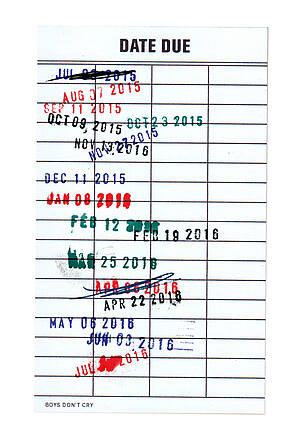 DATE DUE
JUL 03 2015
AUG 07 2015
SEP 11 2015
OCT 09, 2015 OCT 23 2015
NOV 27 2015
NOV 13 2016
DEC 11 2015
JAN 08 2016
FEB 12 2016
FEB 19 2016
MAR 25 2016
APR 2016
APR 22 2016
MAY 06 2016
JUN 03 2016
JUL 2016
BOYS DON'T CRY